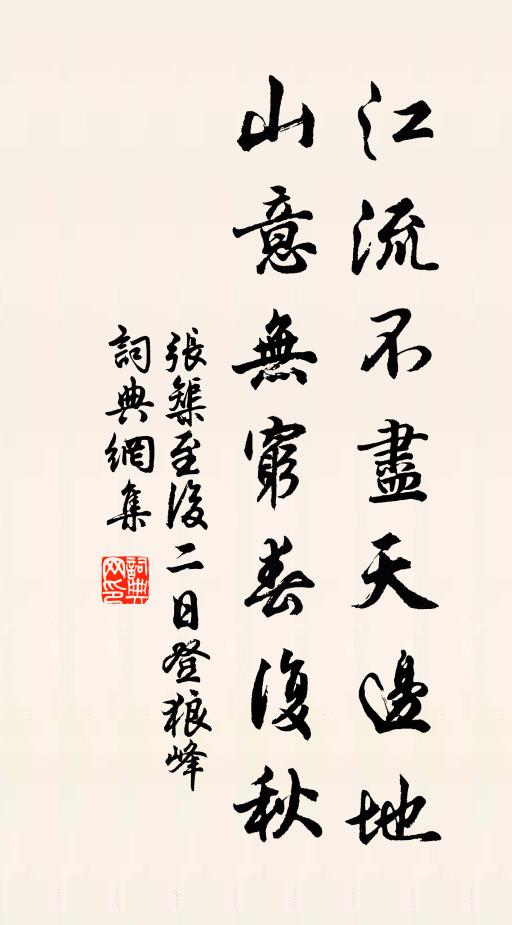 江流不盡天邊地
山意無窮春復秋
張榘至後二日登狼峰
詞典網集
詞典
网印